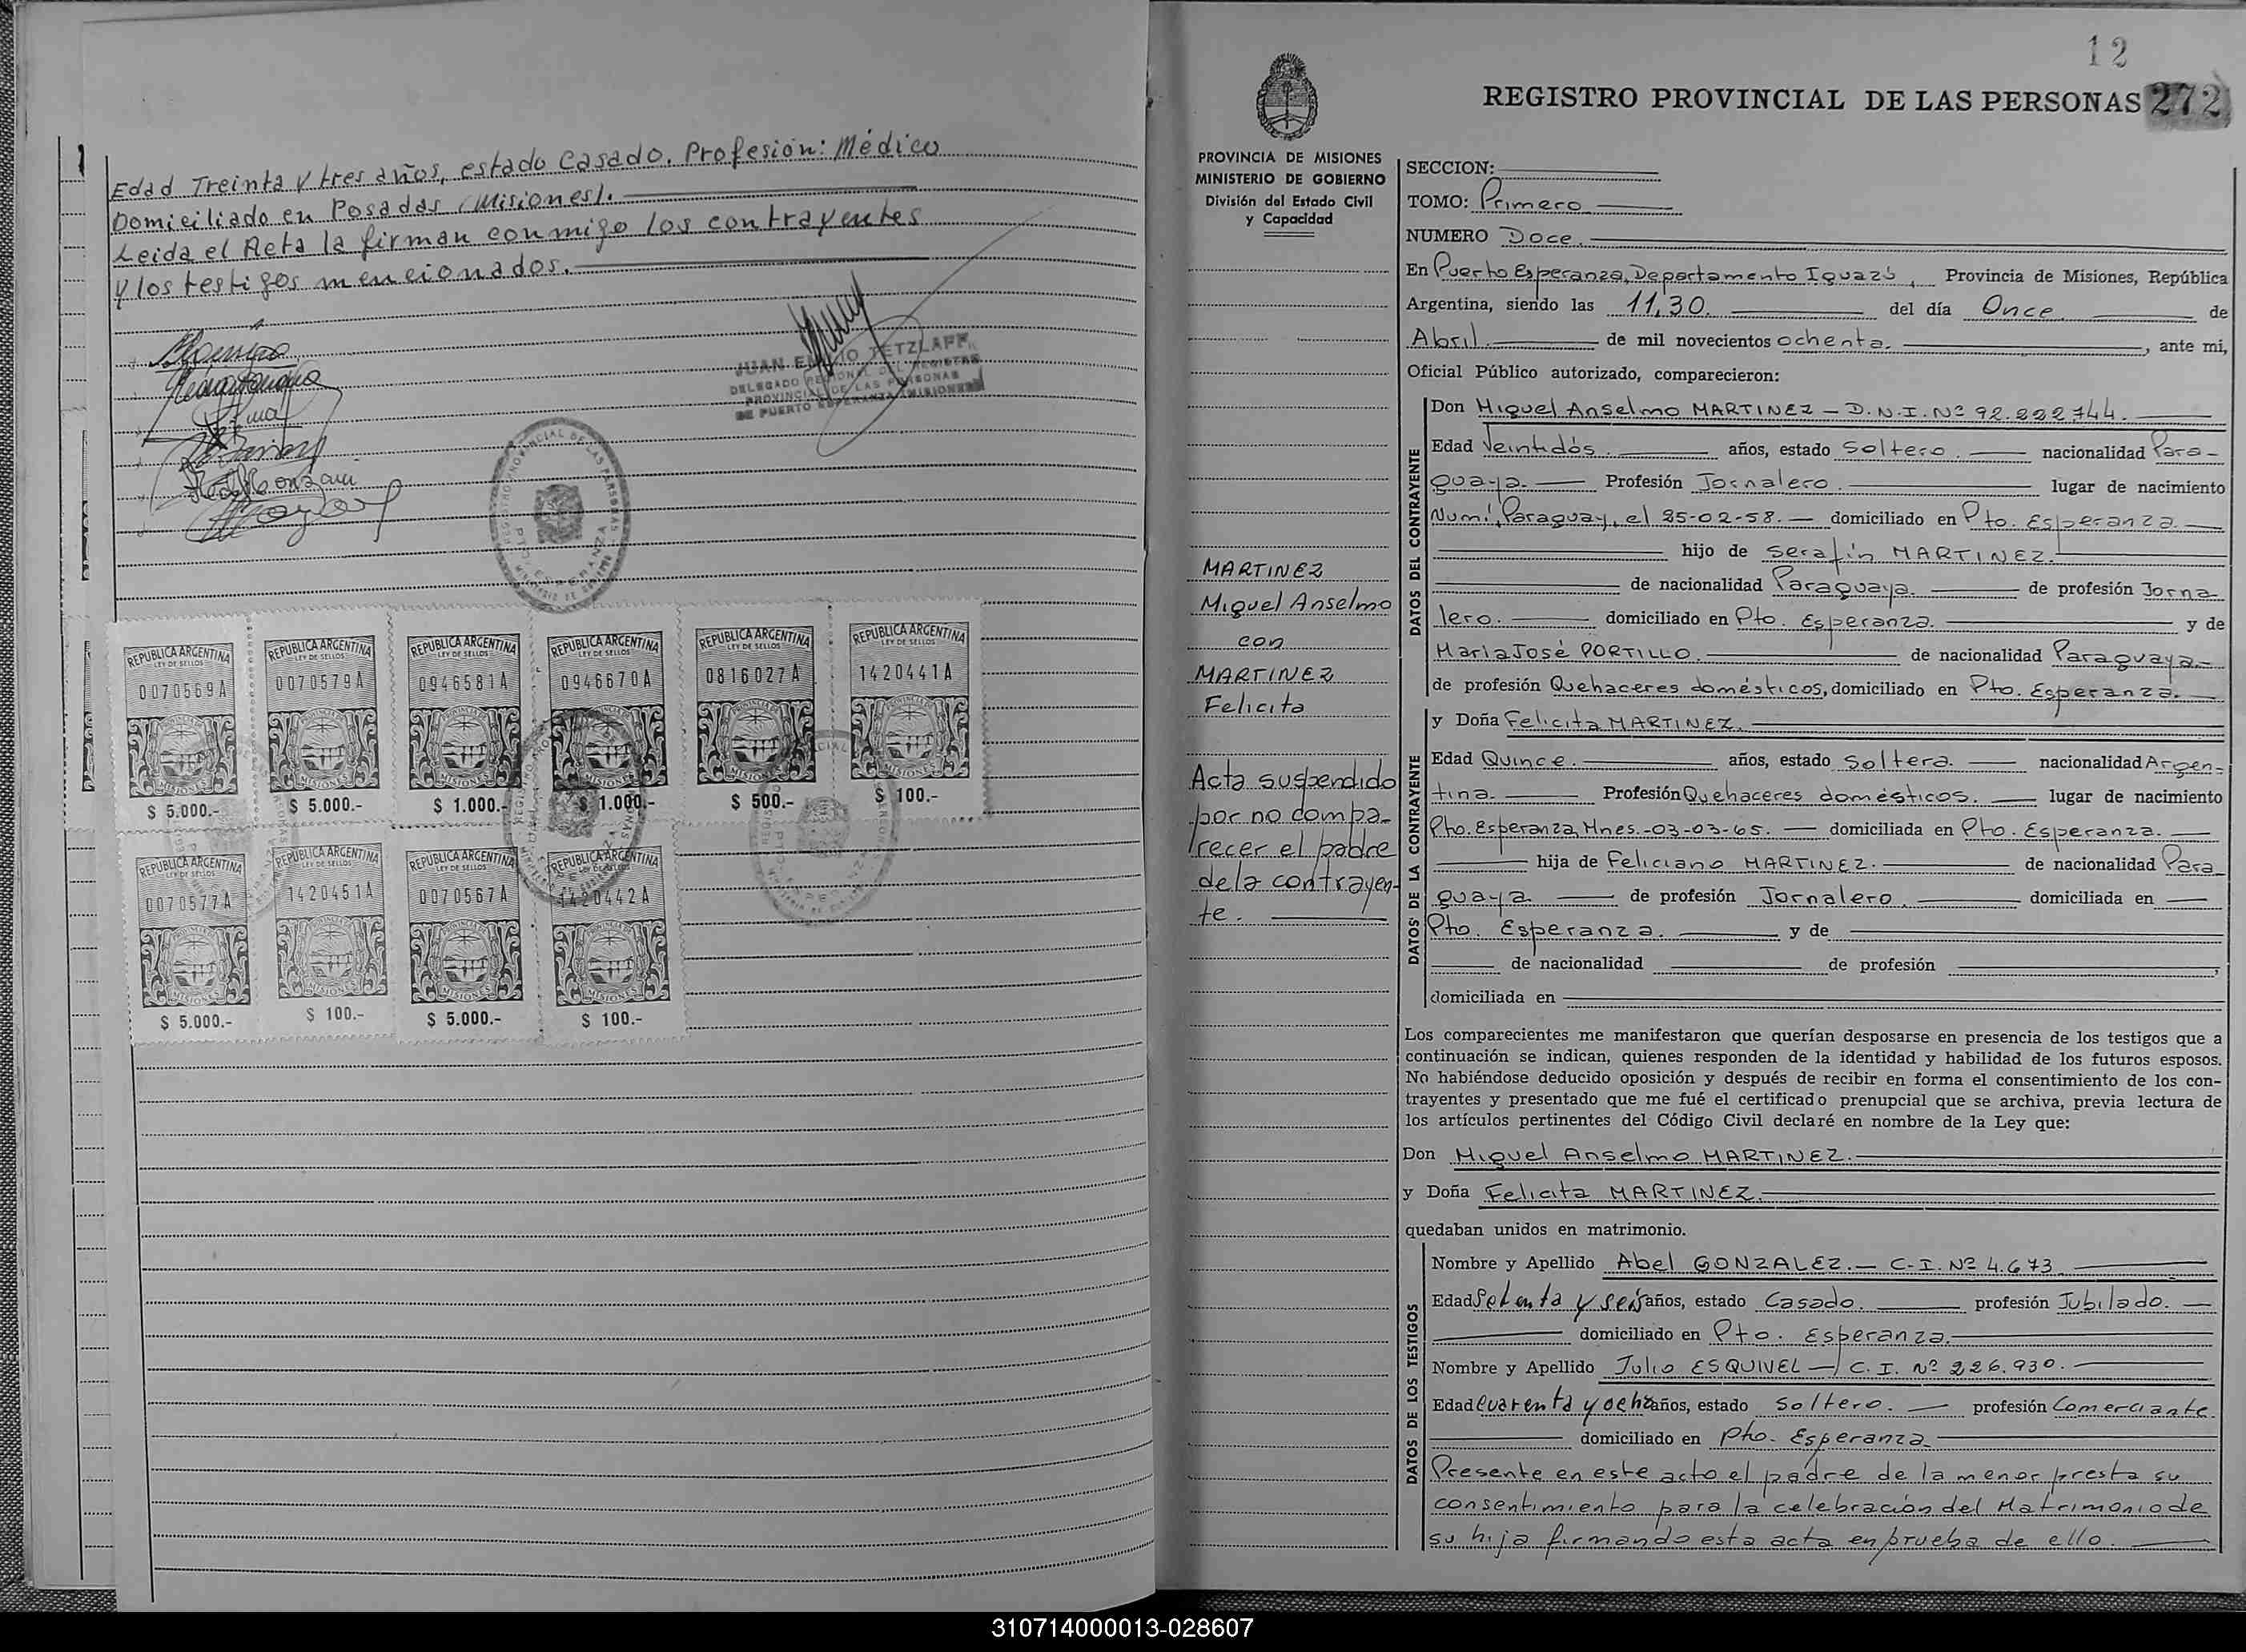 Edad Treinta y tres años, estado Casado. Profesión: Médico
Domiciliado en Posadas (Misiones).
Leida el Acta la firman conmigo los contrayentes
y los testigos mencionados.
JUAN EMILIO TETZLAFF
DELEGADO REGIONAL DEL REGISTRO
PROVINCIAL DE LAS PERSONAS
DE PUERTO ESPERANZA (MISIONES)
REPUBLICA ARGENTINA
LEY DE SELLOS
0070569A
MISIONES
$ 5.000.-
REPUBLICA ARGENTINA
LEY DE SELLOS
0070579A
MISIONES
$ 5.000.-
REPUBLICA ARGENTINA
LEY DE SELLOS
0946581A
MISIONES
$ 1.000.-
REPUBLICA ARGENTINA
LEY DE SELLOS
0946670A
MISIONES
$ 1.000.-
REPUBLICA ARGENTINA
LEY DE SELLOS
0816027A
MISIONES
$ 500.-
REPUBLICA ARGENTINA
LEY DE SELLOS
1420441A
MISIONES
$ 100.-
REPUBLICA ARGENTINA
LEY DE SELLOS
0070577A
MISIONES
$ 5.000.-
REPUBLICA ARGENTINA
LEY DE SELLOS
1420451A
MISIONES
$ 100.-
REPUBLICA ARGENTINA
LEY DE SELLOS
0070567A
MISIONES
$ 5.000.-
REPUBLICA ARGENTINA
LEY DE SELLOS
1420442A
MISIONES
$ 100.-
12
REGISTRO PROVINCIAL DE LAS PERSONAS 272
PROVINCIA DE MISIONES
MINISTERIO DE GOBIERNO
División del Estado Civil
y Capacidad
MARTINEZ
Miguel Anselmo
con
MARTINEZ
Felicita
Acta suspendido
por no compa-
recer el padre
de la contrayen-
te.
SECCION:
TOMO: Primero
NUMERO Doce.
En Puerto Esperanza, Departamento Iguazú, Provincia de Misiones, República
Argentina, siendo las 11,30. del día Once de
Abril. de mil novecientos ochenta. , ante mi,
Oficial Público autorizado, comparecieron:
DATOS DEL CONTRAYENTE
Don Miguel Anselmo MARTINEZ - D.N.I. Nº 92.222.744.
Edad Veintidós. años, estado Soltero. nacionalidad Para-
guaya. Profesión Jornalero. lugar de nacimiento
Numí, Paraguay, el 25-02-58. domiciliado en Pto. Esperanza.
hijo de Serafín MARTINEZ.
de nacionalidad Paraguaya. de profesión Jorna
lero. domiciliado en Pto. Esperanza. y de
Maria José PORTILLO. de nacionalidad Paraguaya.
de profesión Quehaceres domésticos, domiciliado en Pto. Esperanza.
DATOS DE LA CONTRAYENTE
y Doña Felicita MARTINEZ.
Edad Quince. años, estado Soltera. nacionalidad Argen-
tina. Profesión Quehaceres domésticos. lugar de nacimiento
Pto. Esperanza, Mnes.-03-03-65. domiciliada en Pto. Esperanza.
hija de Feliciano MARTINEZ. de nacionalidad Para
guaya de profesión Jornalero. domiciliada en
Pto. Esperanza. y de
de nacionalidad de profesión ,
domiciliada en
Los comparecientes me manifestaron que querían desposarse en presencia de los testigos que a
continuación se indican, quienes responden de la identidad y habilidad de los futuros esposos.
No habiéndose deducido oposición y después de recibir en forma el consentimiento de los con-
trayentes y presentado que me fué el certificado prenupcial que se archiva, previa lectura de
los artículos pertinentes del Código Civil declaré en nombre de la Ley que:
Don Miguel Anselmo MARTINEZ.
y Doña Felicita MARTINEZ.
quedaban unidos en matrimonio.
DATOS DE LOS TESTIGOS
Nombre y Apellido Abel GONZALEZ. - C.I. Nº 4.673
Edad Setenta y seis años, estado Casado. profesión Jubilado.
domiciliado en Pto. Esperanza.
Nombre y Apellido Julio ESQUIVEL - C.I. Nº 226.930.
Edad Cuarenta y ocho años, estado Soltero. profesión Comerciante.
domiciliado en Pto. Esperanza
Presente en este acto el padre de la menor presta su
consentimiento para la celebración del Matrimonio de
su hija firmando esta acta en prueba de ello.
310714000013-028607